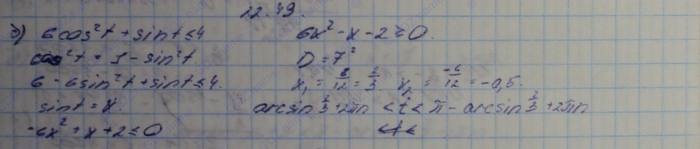 12.49.
б) 6cos²t + sint ≤ 4
cos²t = 1 - sin²t
6 - 6sin²t + sint ≤ 4.
sint = x.
-6x² + x + 2 ≤ 0
6x² - x - 2 ≥ 0.
D = 7²
x₁ = 8/12 = 2/3 x₂ = -6/12 = -0,5.
arcsin 2/3 + 2πn < t < π - arcsin 2/3 + 2πn
< t <